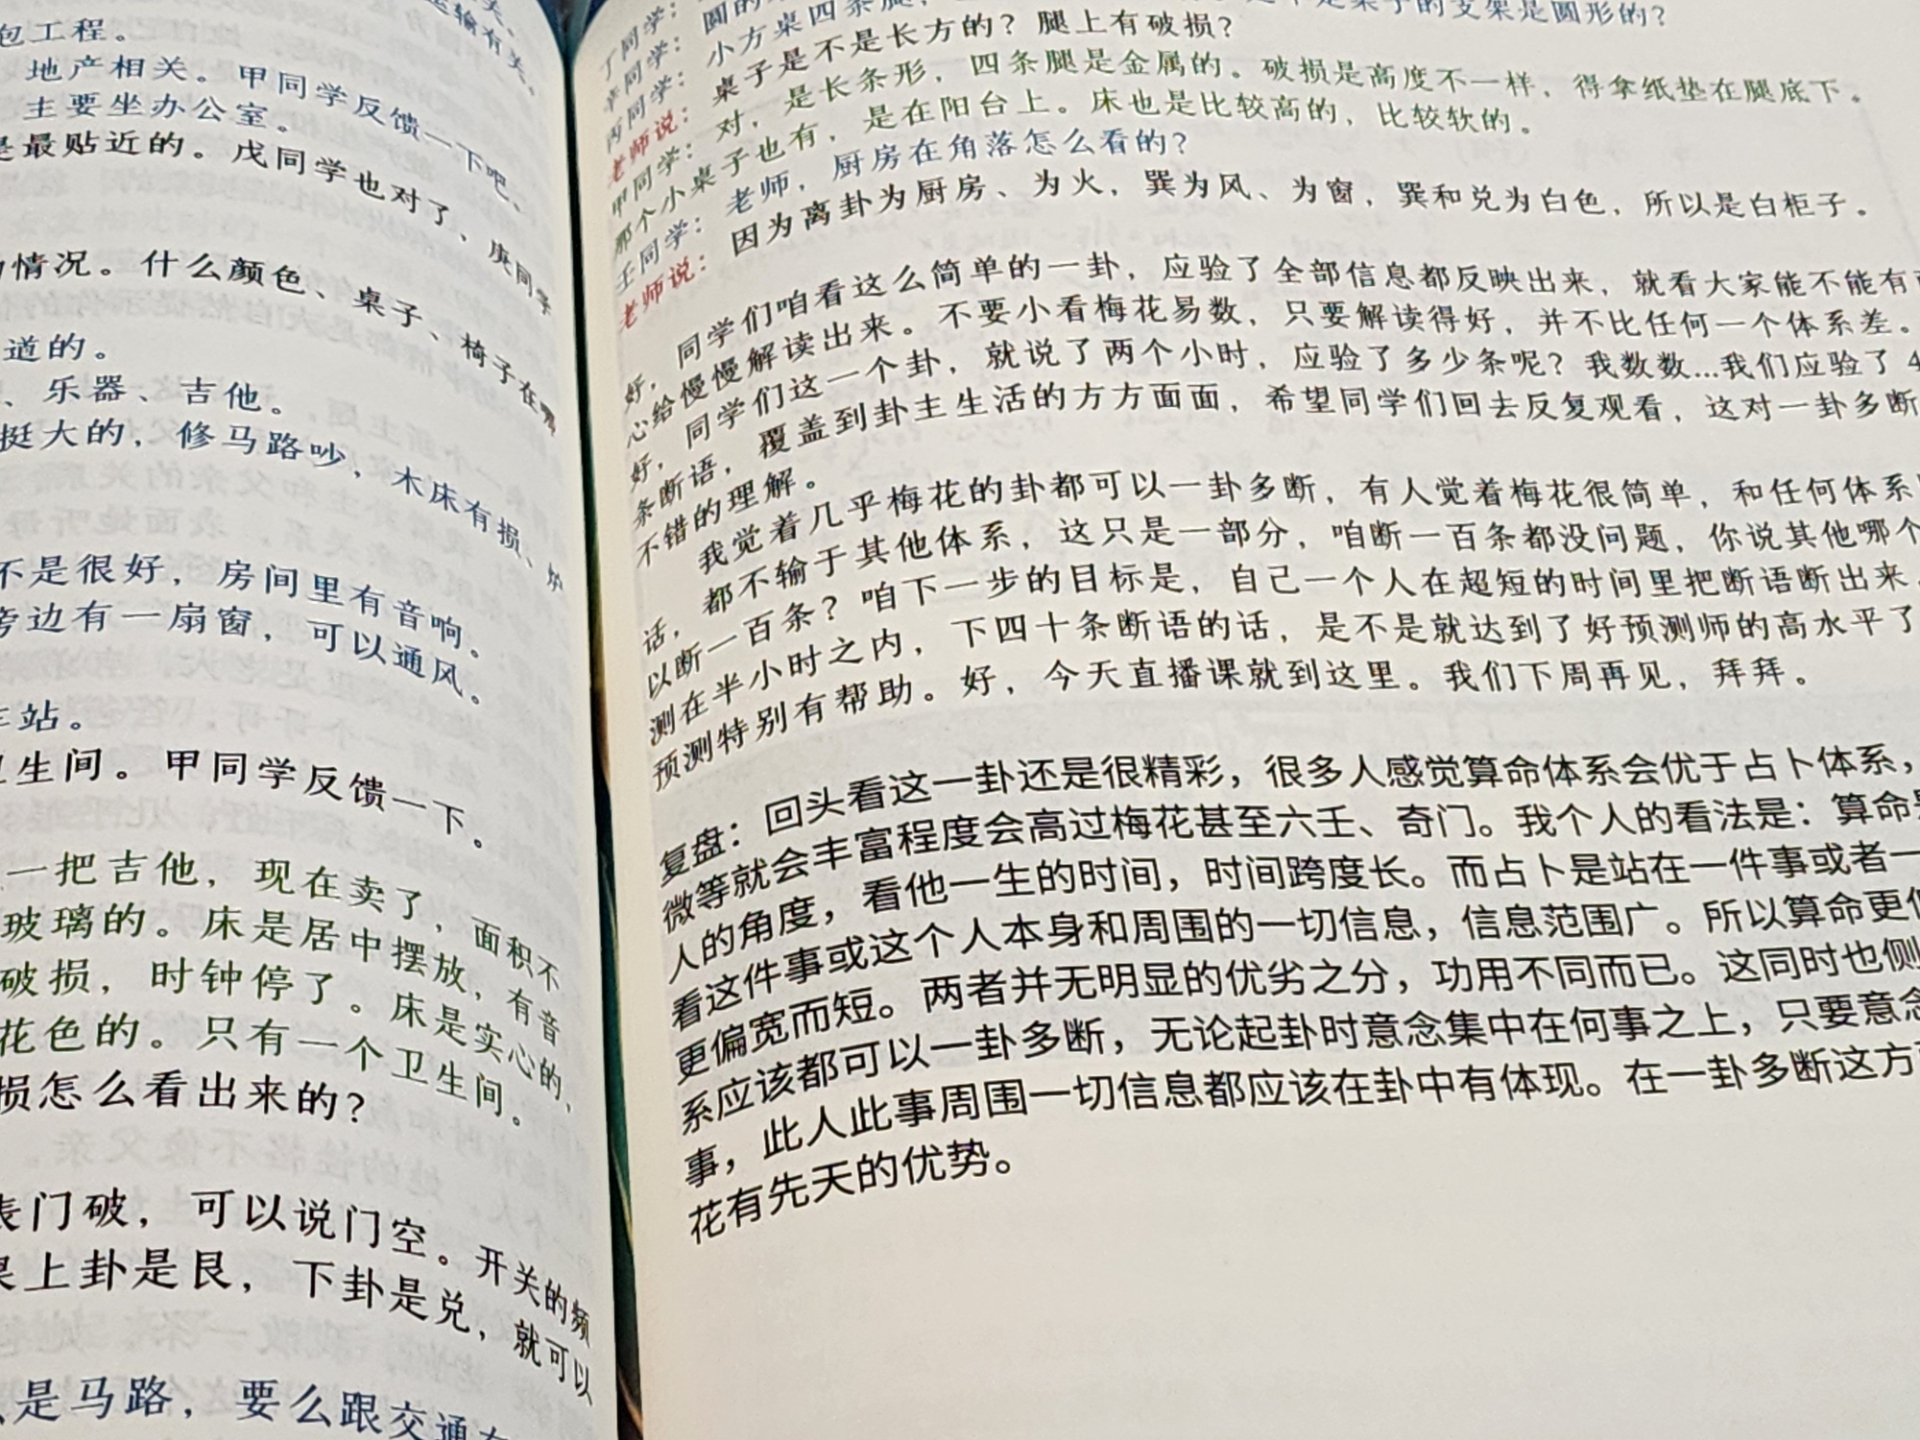 包工程。
地产相关。甲同学反馈一下吧、
主要坐办公室。
是最贴近的。戊同学也对了、庚同学
情况。什么颜色、桌子、椅子在哪
道的。
、乐器、吉他。
挺大的，修马路吵，木床有损、炉
不是很好，房间里有音响。
旁边有一扇窗，可以通风。
车站。
卫生间。甲同学反馈一下。
一把吉他，现在卖了，面积不
玻璃的。床是居中摆放，有音
破损，时钟停了。床是实心的、
花色的。只有一个卫生间。
损怎么看出来的？
表门破，可以说门空。开关的频
果上卦是艮，下卦是兑，就可以
是马路，要么跟交通
丁同学：圆的
辛同学：小方桌四条腿，是不是桌子的支架是圆形的？
丙同学：桌子是不是长方的？腿上有破损？
老师说：
甲同学：对，是长条形，四条腿是金属的。破损是高度不一样，得拿纸垫在腿底下。
那个小桌子也有，是在阳台上。床也是比较高的，比较软的。
壬同学：老师，厨房在角落怎么看的？
老师说：因为离卦为厨房、为火，巽为风、为窗，巽和兑为白色，所以是白柜子。
同学们咱看这么简单的一卦，应验了全部信息都反映出来，就看大家能不能有
好，
心给慢慢解读出来。不要小看梅花易数，只要解读得好，并不比任何一个体系差。
好，同学们这一个卦，就说了两个小时，应验了多少条呢？我数数...我们应验了 4
条断语，覆盖到卦主生活的方方面面，希望同学们回去反复观看，这对一卦多断
不错的理解。
我觉着几乎梅花的卦都可以一卦多断，有人觉着梅花很简单，和任何体系
话，都不输于其他体系，这只是一部分，咱断一百条都没问题，你说其他哪个
以断一百条？咱下一步的目标是，自己一个人在超短的时间里把断语断出来
测在半小时之内，下四十条断语的话，是不是就达到了好预测师的高水平了
预测特别有帮助。好，今天直播课就到这里。我们下周再见，拜拜。
复盘：回头看这一卦还是很精彩，很多人感觉算命体系会优于占卜体系，
微等就会丰富程度会高过梅花甚至六壬、奇门。我个人的看法是：算命是
人的角度，看他一生的时间，时间跨度长。而占卜是站在一件事或者一
看这件事或这个人本身和周围的一切信息，信息范围广。所以算命更
更偏宽而短。两者并无明显的优劣之分，功用不同而已。这同时也侧
系应该都可以一卦多断，无论起卦时意念集中在何事之上，只要意念
事，此人此事周围一切信息都应该在卦中有体现。在一卦多断这方
花有先天的优势。